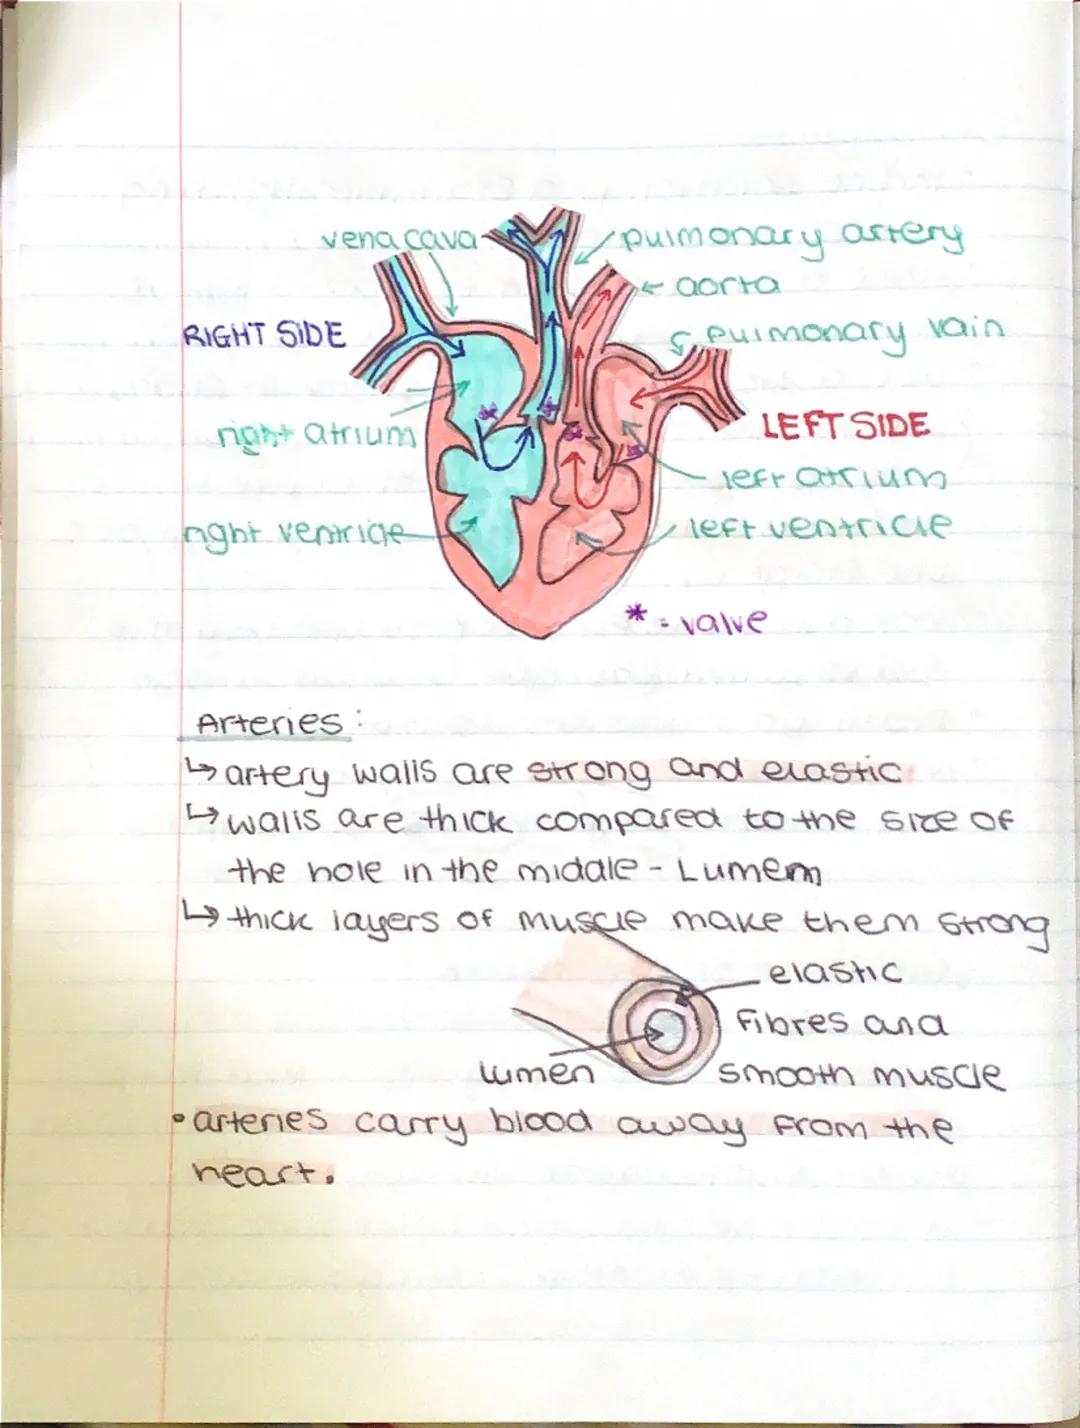 vena cava
pulmonary artery
aorta
RIGHT SIDE
pulmonary vain
right atrium
LEFT SIDE
left atrium
right ventricle
left ventricle
* = valve
Arteries:
↳ artery walls are strong and elastic
↳ walls are thick compared to the size of
the hole in the middle - Lumem
↳ thick layers of muscle make them strong
elastic
fibres and
lumen
smooth muscle
• arteries carry blood away from the
heart.